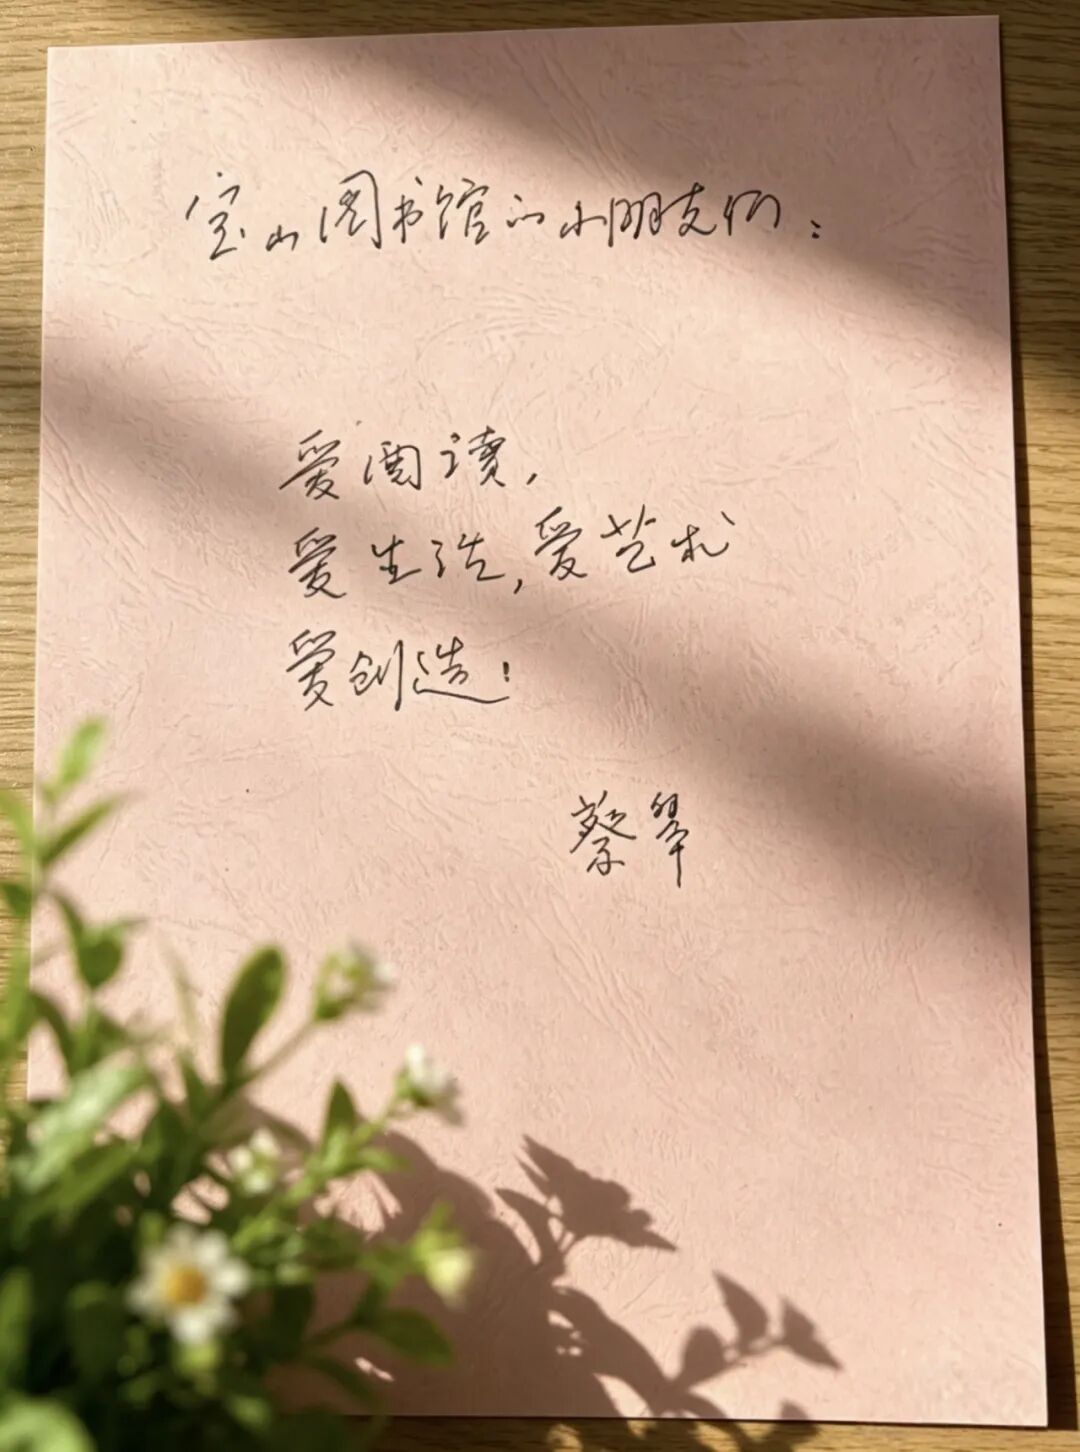 宝山图书馆的小朋友们：
爱阅读，
爱生活，爱艺术
爱创造！
蔡琴